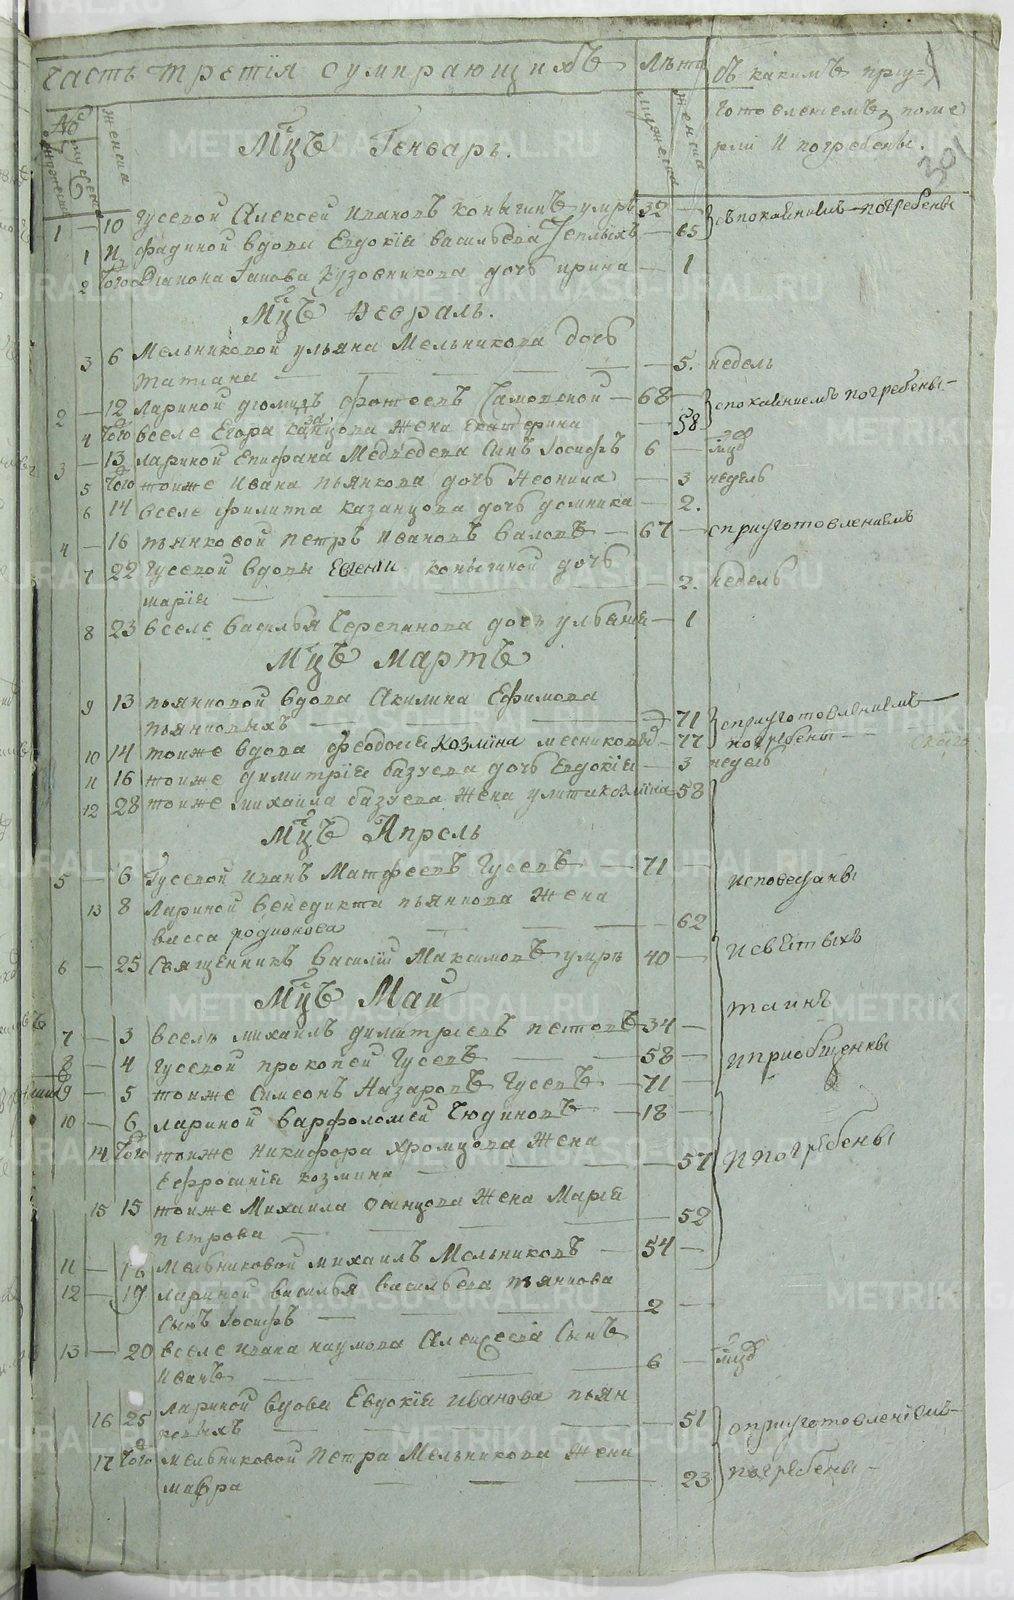 Часть третія о умирающихъ Лѣта Съ какимъ пріу=
готовленіемъ поме
рли и погребены.
301
№ мужеска женска мужеска женска
Мцъ Генварь.
1 — 10 гусевой Алексей Ивановъ Копыгинъ умръ 32 — съ покаяниемъ погребены
1 вдовы Евдокіи Васильева Теплыхъ — 65
2 того Кузовникова дочь Ирина — 1
Мцъ Февраль.
3 6 Мельниковой ульяна Мельникова дочь
Татиана — — — — 5. недель
2 — 12 Лариной Фотеевъ — 68 — спокаяниемъ погребены —
4 того вселе Егора жена Екатерина 58
3 — 13 Лариной Епифана Медведева сынъ Іосифъ 6 — мцъ
5 того тоиже Ивана Пьянкова дочь Неонила — 3 недель
6 14 вселе Филиппа Казанцова дочь домника — 2.
4 — 16 пьянковой Петръ Ивановъ Валовъ — 67 — сприуготовлениемъ
7 22 Гусевой вдовы Евгении Копыгиной дочь
Мария — — — 2. недель
8 23 вселе Василья Черепанова дочь улияния — 1
Мцъ Мартъ
9 13 пьянковой вдова Акилина Ефимова
пьянковыхъ — — 71 сприуготовлениемъ
10 14 тоиже вдова Феодосия Козмина месникова — 77 погребены — —
11 16 тоиже димитрія базуева дочь Евдокія — 3 недель
12 28 тоиже михаила базуева жена козміна 58
Мцъ Апрель
5 — 6 Гусевой Иванъ Матфеевъ Гусевъ — 71 — исповеданы
13 8 Лариной Венедикта пьянкова жена
васса родионова — — 62
6 — 25 Священникъ Василій Максимовъ умръ 40 — и святыхъ
Мцъ Май таинъ
7 — 3 вселе михаилъ димитриевъ петовъ 34 —
8 — 4 гусевой прокопей Гусевъ — — 58 — и приобщенны
9 — 5 тоиже Симеонъ Назаровъ Гусевъ — 71 —
10 — 6 лариной Варфоломей Чюдиновъ — 18 —
14 того тоиже Никифора Хромцова жена
Ефросиния Козмина — — 57 и погребены
15 15 тоиже Михаила жена Мария
петрова — — — 52
11 — 16 Мельниковой михаилъ Мельниковъ — 54 —
12 — 19 лариной василья васильева пьянкова
сынъ Іосифъ — — 2 —
13 — 20 вселе Ивана наумова Алексеева сынъ
Иванъ — — 6 — мцъ
16 25 лариной вдова Евдокія Иванова пьян
ковыхъ — — 51 сприуготовленіемъ —
17 того мельниковой Петра Мельникова жена
мавра — — 23 погребены —
METRIKI.GASO-URAL.RU